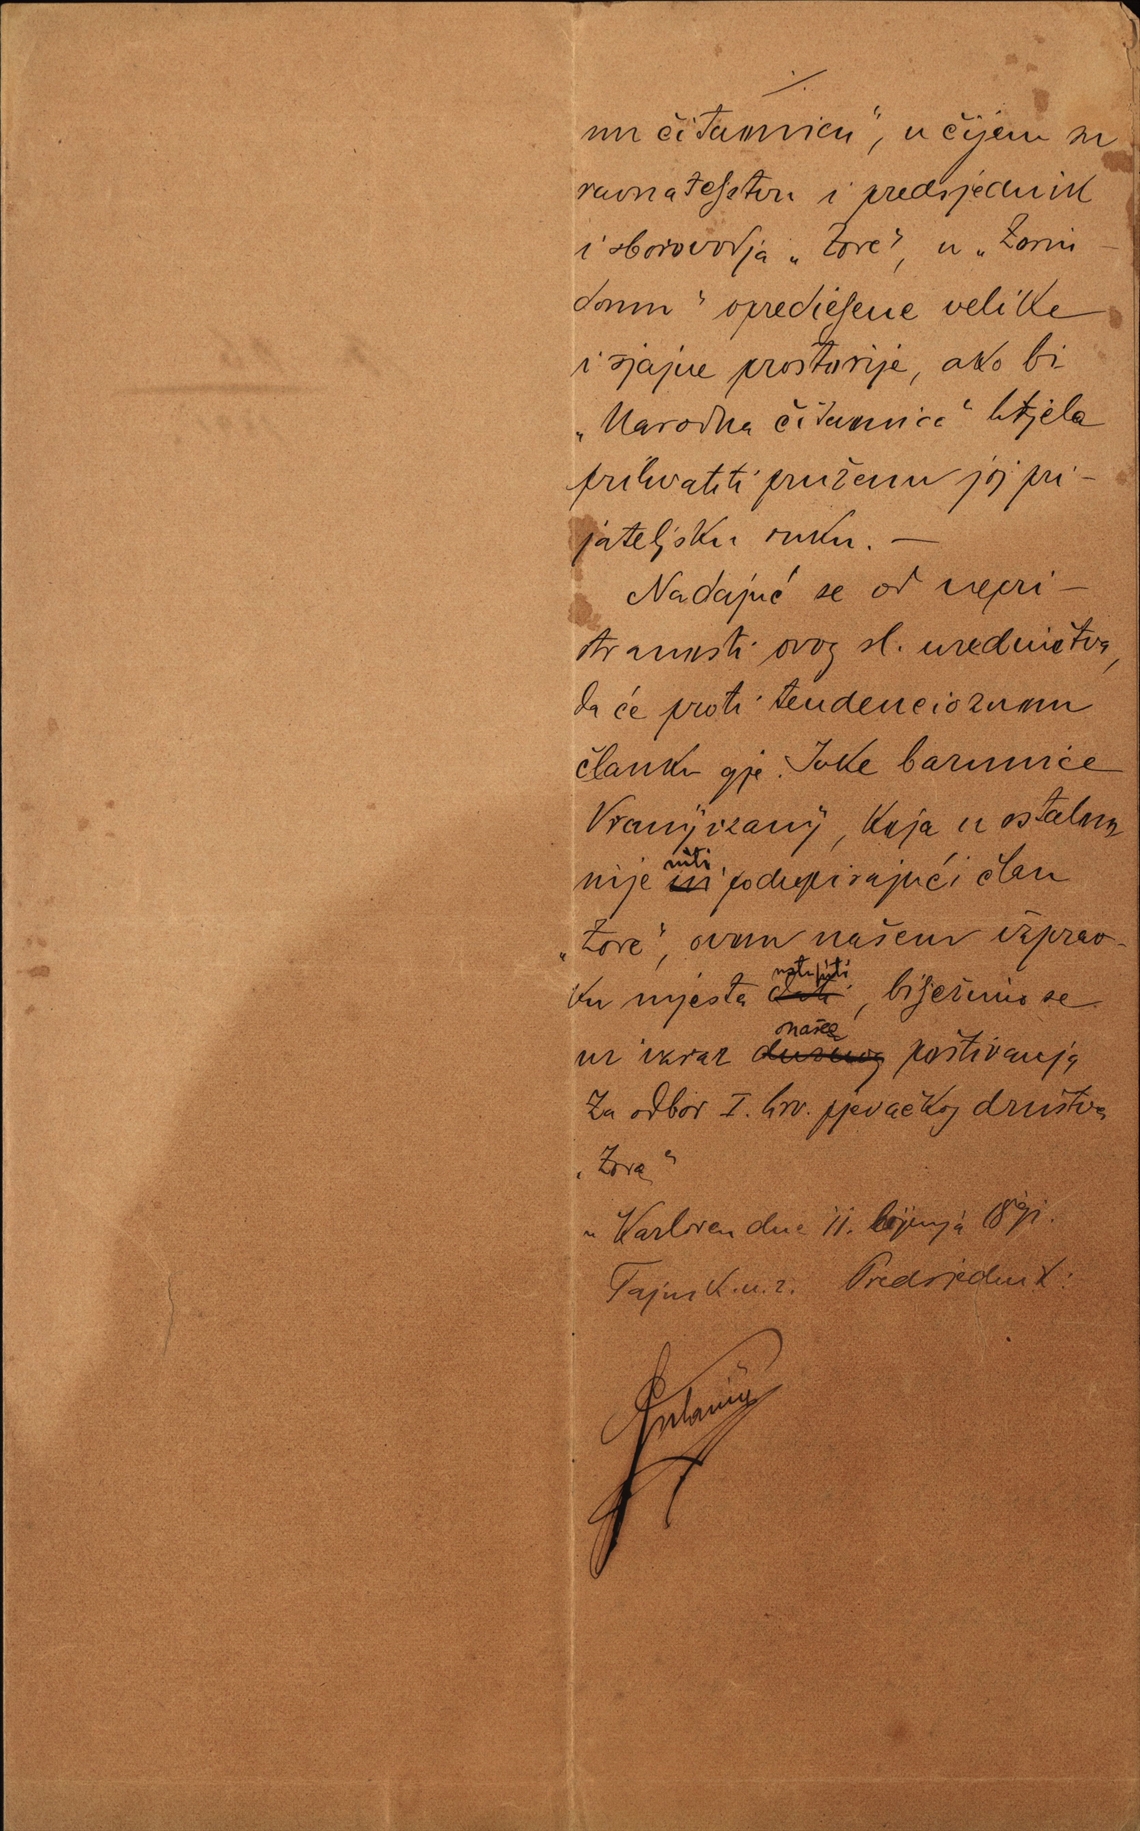 nu čitaonicu", u čijem su
ravnateljstvu i predsjednik
i sborovodja „Zore", u „Zorin-
domu" opredieljene velike
i sjajne prostorije, ako bi
„Narodna čitaonica" htjela
prihvatiti pruženu joj pri-
jateljsku ruku. —
Nadajuć se od nepri-
stranosti ovog sl. uredničtva,
da će proti tendencioznomu
članku gje. Ivke barunice
Vranÿczanÿ, koja u ostalom
nije niti podupirajući član
„Zore", ovom našem izprav-
ku mjesta ustupiti, bilježimo se
uz izraz našeg poštivanja
Za odbor I. hrv. pjevačkog društva
„Zora"
u Karlovcu dne 11. lipnja 1891.
Tajnik. u. z. Predsjednik: